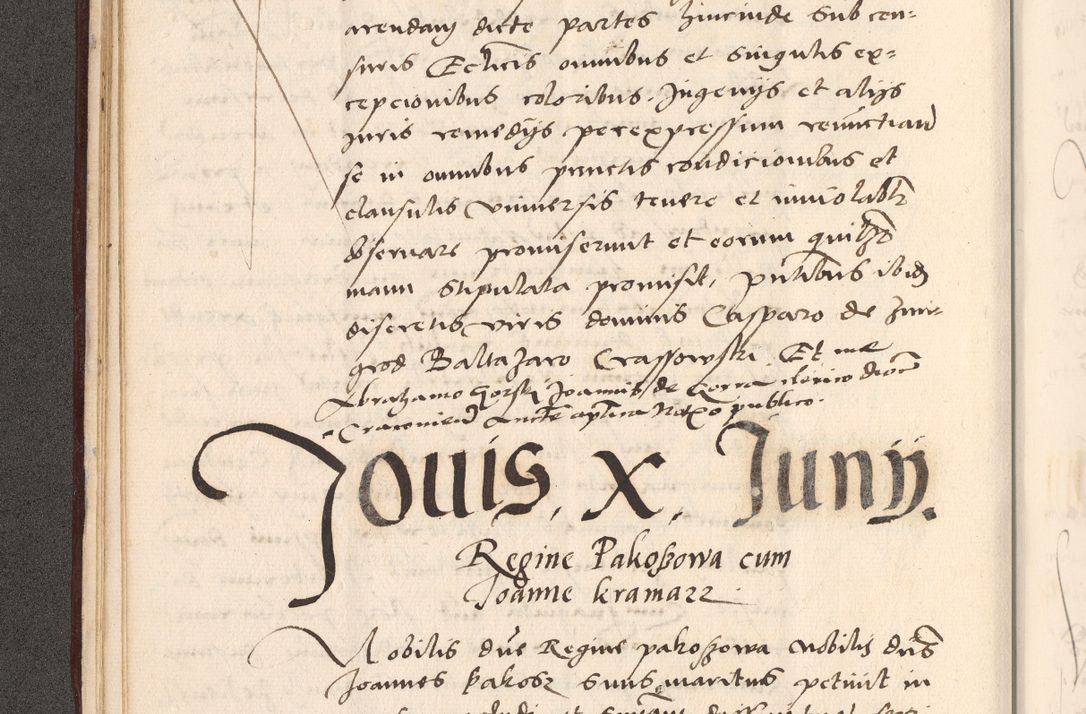 arendam dicte partes hincinde sub cen-
suris Eccl'icis omnibus et singulis ex-
cepcionibus coloribus, Ingenijs et alijs
Juris remedijs per expressum renunctiand
se in omnibus punctis condicionibus et
clausulis vniuersis tenere et inuiolabl'r
obseruare promiserunt et eorum quilibz
manu stipulata promisit, pn'tibus ibid
discretis viris dominis Casparo de Jmi-
grod Baltazaro Crassowski Et me
Abrahamo Gorski Joannis de Gorra clerico dioc'
Cracouien' aucte aplica Notario publico.
Jouis. X. Juny.
Regine Pakoszowa cum
Joanne kramarz
Nobilis dn'e Regine pakoszowa Nobilis dn's
Joannes Pakosz suus maritus petiuit in